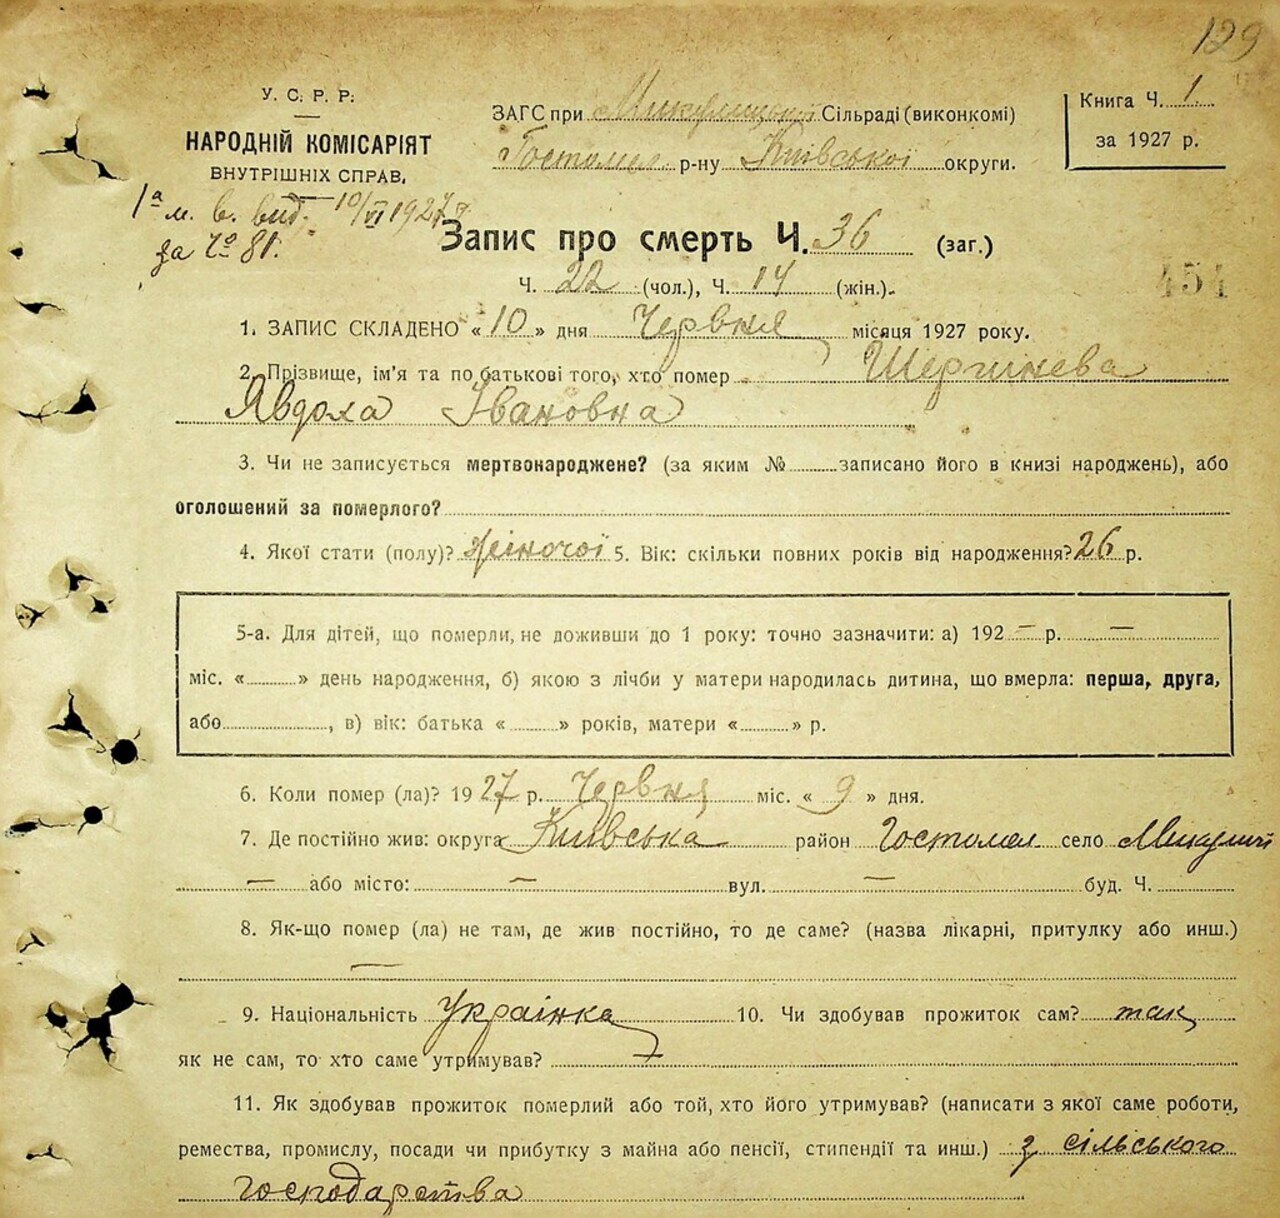 129
У. С. Р. Р.
НАРОДНІЙ КОМІСАРІЯТ
ВНУТРІШНІХ СПРАВ.
ЗАГС при Микулицькій Сільраді (виконкомі)
Гостомел р-ну Київської округи.
Книга Ч. 1.
за 1927 р.
1а м. в. вид. 10/VI 1927 р.
за Чо 81.
Запис про смерть Ч. 36 (заг.)
Ч. 22 (чол.), Ч. 14 (жін.).
451
1. ЗАПИС СКЛАДЕНО « 10 » дня Червня місяця 1927 року.
2. Прізвище, ім'я та по батькові того, хто помер
Явдоха Івановна
3. Чи не записується мертвонароджене? (за яким № записано його в книзі народжень), або
оголошений за померлого?
4. Якої стати (полу)? жіночої 5. Вік: скільки повних років від народження? 26 р.
5-а. Для дітей, що померли, не доживши до 1 року: точно зазначити: а) 192 — р. —
міс. « » день народження, б) якою з лічби у матери народилась дитина, що вмерла: перша, друга,
або , в) вік: батька « » років, матери « » р.
6. Коли помер (ла)? 1927 р. Червня міс. « 9 » дня.
7. Де постійно жив: округа Київська район Гостомел село Микулич
— або місто: — вул. — буд. Ч.
8. Як-що помер (ла) не там, де жив постійно, то де саме? (назва лікарні, притулку або инш.)
—
9. Національність Українка 10. Чи здобував прожиток сам? так
як не сам, то хто саме утримував? —
11. Як здобував прожиток померлий або той, хто його утримував? (написати з якої саме роботи,
ремества, промислу, посади чи прибутку з майна або пенсії, стипендії та инш.) з сільського
господарства